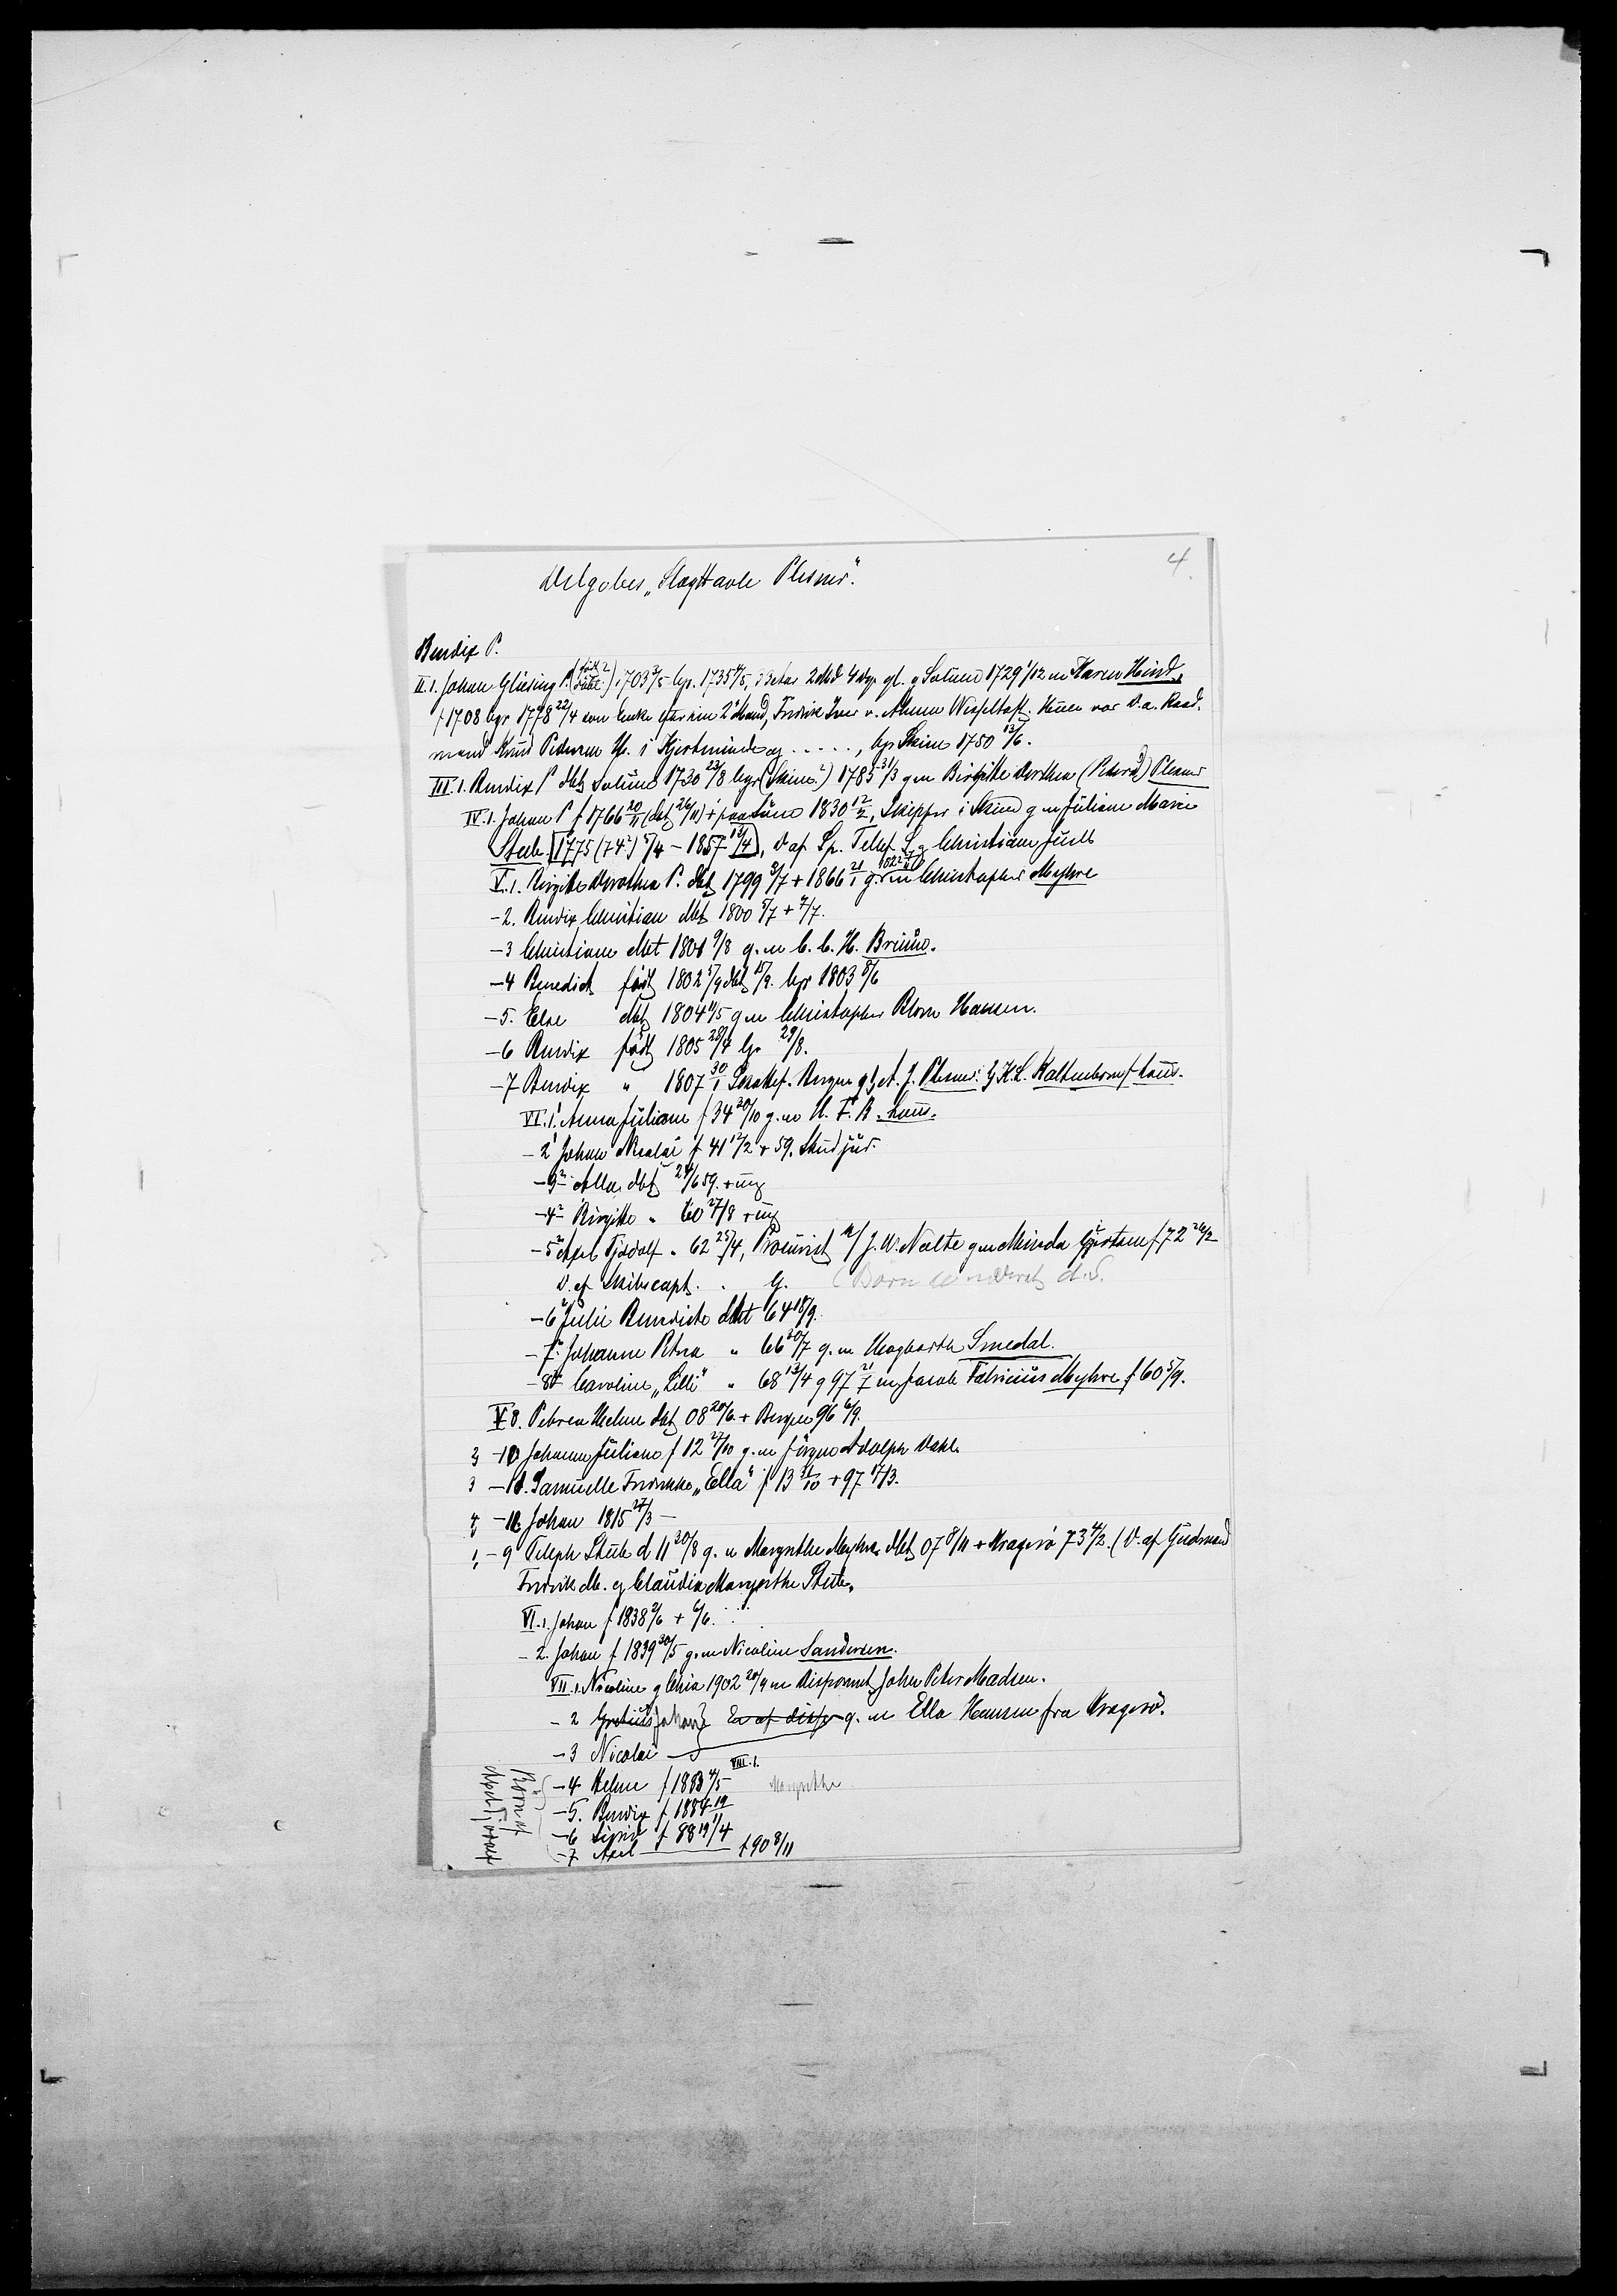 4.
Delgobes „Slagttavle Plesner“.
Bendix P.
II.1. Johan Glüsing P. (født? døbt?) 1703 2/5 bgr. 1735 4/5, 2det 4de gl. g Solum 1729 1/12 m Karen Hind,
f 1708 bgr 1778 22/4 som Enke efter sin 2' Mand, Fredrik Iver v. Ahnen Wesseltoft. Hun var D. a. Raad-
mand Knud Pedersen H. i Kjerteminde og ....., bgr Skien 1750 13/6.
III.1. Bendix P dbt Solum 1730 23/8 bgr (Skien?) 1785 31/3 g m Birgitte Dorthea (Petersd) Plesner
IV.1. Johan P f 1766 20/11 (dbt 26/11) + paa 1830 12/2, Skipper i Skien g m Juliane Marie
Stub [1775 (74?) 5/4 - 1857 13/4], D af Sp. Teleph S. g Christiane Juell
V.1. Birgitte Dorothea P. dbt 1799 3/7 + 1866 21/1 g. m Christopher Myhre
- 2. Bendix Christian dbt 1800 5/7 + 9/7.
- 3 Christiane dbt 1801 9/8 g. m C. C. H. Bruun.
- 4 Benedict født 1802 5/9 dbt 15/9. bgr 1803 8/6
- 5. Else dbt 1804 11/5 g m Christopher Blom Hansen.
- 6 Bendix født 1805 28/4 bgr 29/8.
- 7 Bendix " 1807 30/1 Bergen g1 A. J. Plesner: g H. L. Kaltenborn f. Laum.
VI.1.' Anna Juliane f 34 20/10 g. m H. F. B. Laum.
- 2' Johan Nicolai f 41 12/2 + 59. Stud jur.
- 3² Alla dbt 24/6 59. + ung
- 4² Birgitte " 60 27/8 + ung
- 5² Axel Tjodolf " 62 25/4, Prokurist / J. W. Nolte g m Minda Gjertsen f 72 26/2
D. af Skibscapt. . G. (Børn d. S.
- 6² Julie Bendicte dbt 64 18/9.
- 7² Johanne Petra " 66 20/7 g. m Hagbarth Smedal.
- 8² Caroline „Lilli“ " 68 13/4 g 97 21/7 m Jacob Fabricius Myhre f 60 5/9.
V 8. Petrea Helene dbt 08 20/6. + Bergen 96 6/9.
2 -10 Johanne Juliane f 12 27/10 g. m Jørgen Adolph Dahl.
3 -11. Samuelle Fredrikke „Ella“ f 13 31/10 + 97 17/3.
4 -12 Johan 1815 27/3 -
1, - 9 Teleph Stub d 11 30/8 g. m Margrethe Myhre dbt 07 8/11 + Kragerø 73 4/2. (D. af Gudmand
Fredrik M. og Claudia Margrethe Stub.
VI.1. Johan f 1838 2/6 + 6/6.
- 2. Johan f 1839 30/5 g. m Nicoline Sandersen.
VII.1. Nicoline g Chria 1902 20/9 m Disponent Johan Peter Madsen.
- 2 Johan En af disse g. m Ella Hansen fra Kragerø.
- 3 Nicolai
VIII.1.
Margrethe
- 4 Helene f 1883 4/5
- 5. Bendix f 1884 19/11
- 6 Sigrid f 88 19/4
- 7 Axel + 90 8/11
Børn af
Axel Tjodolf